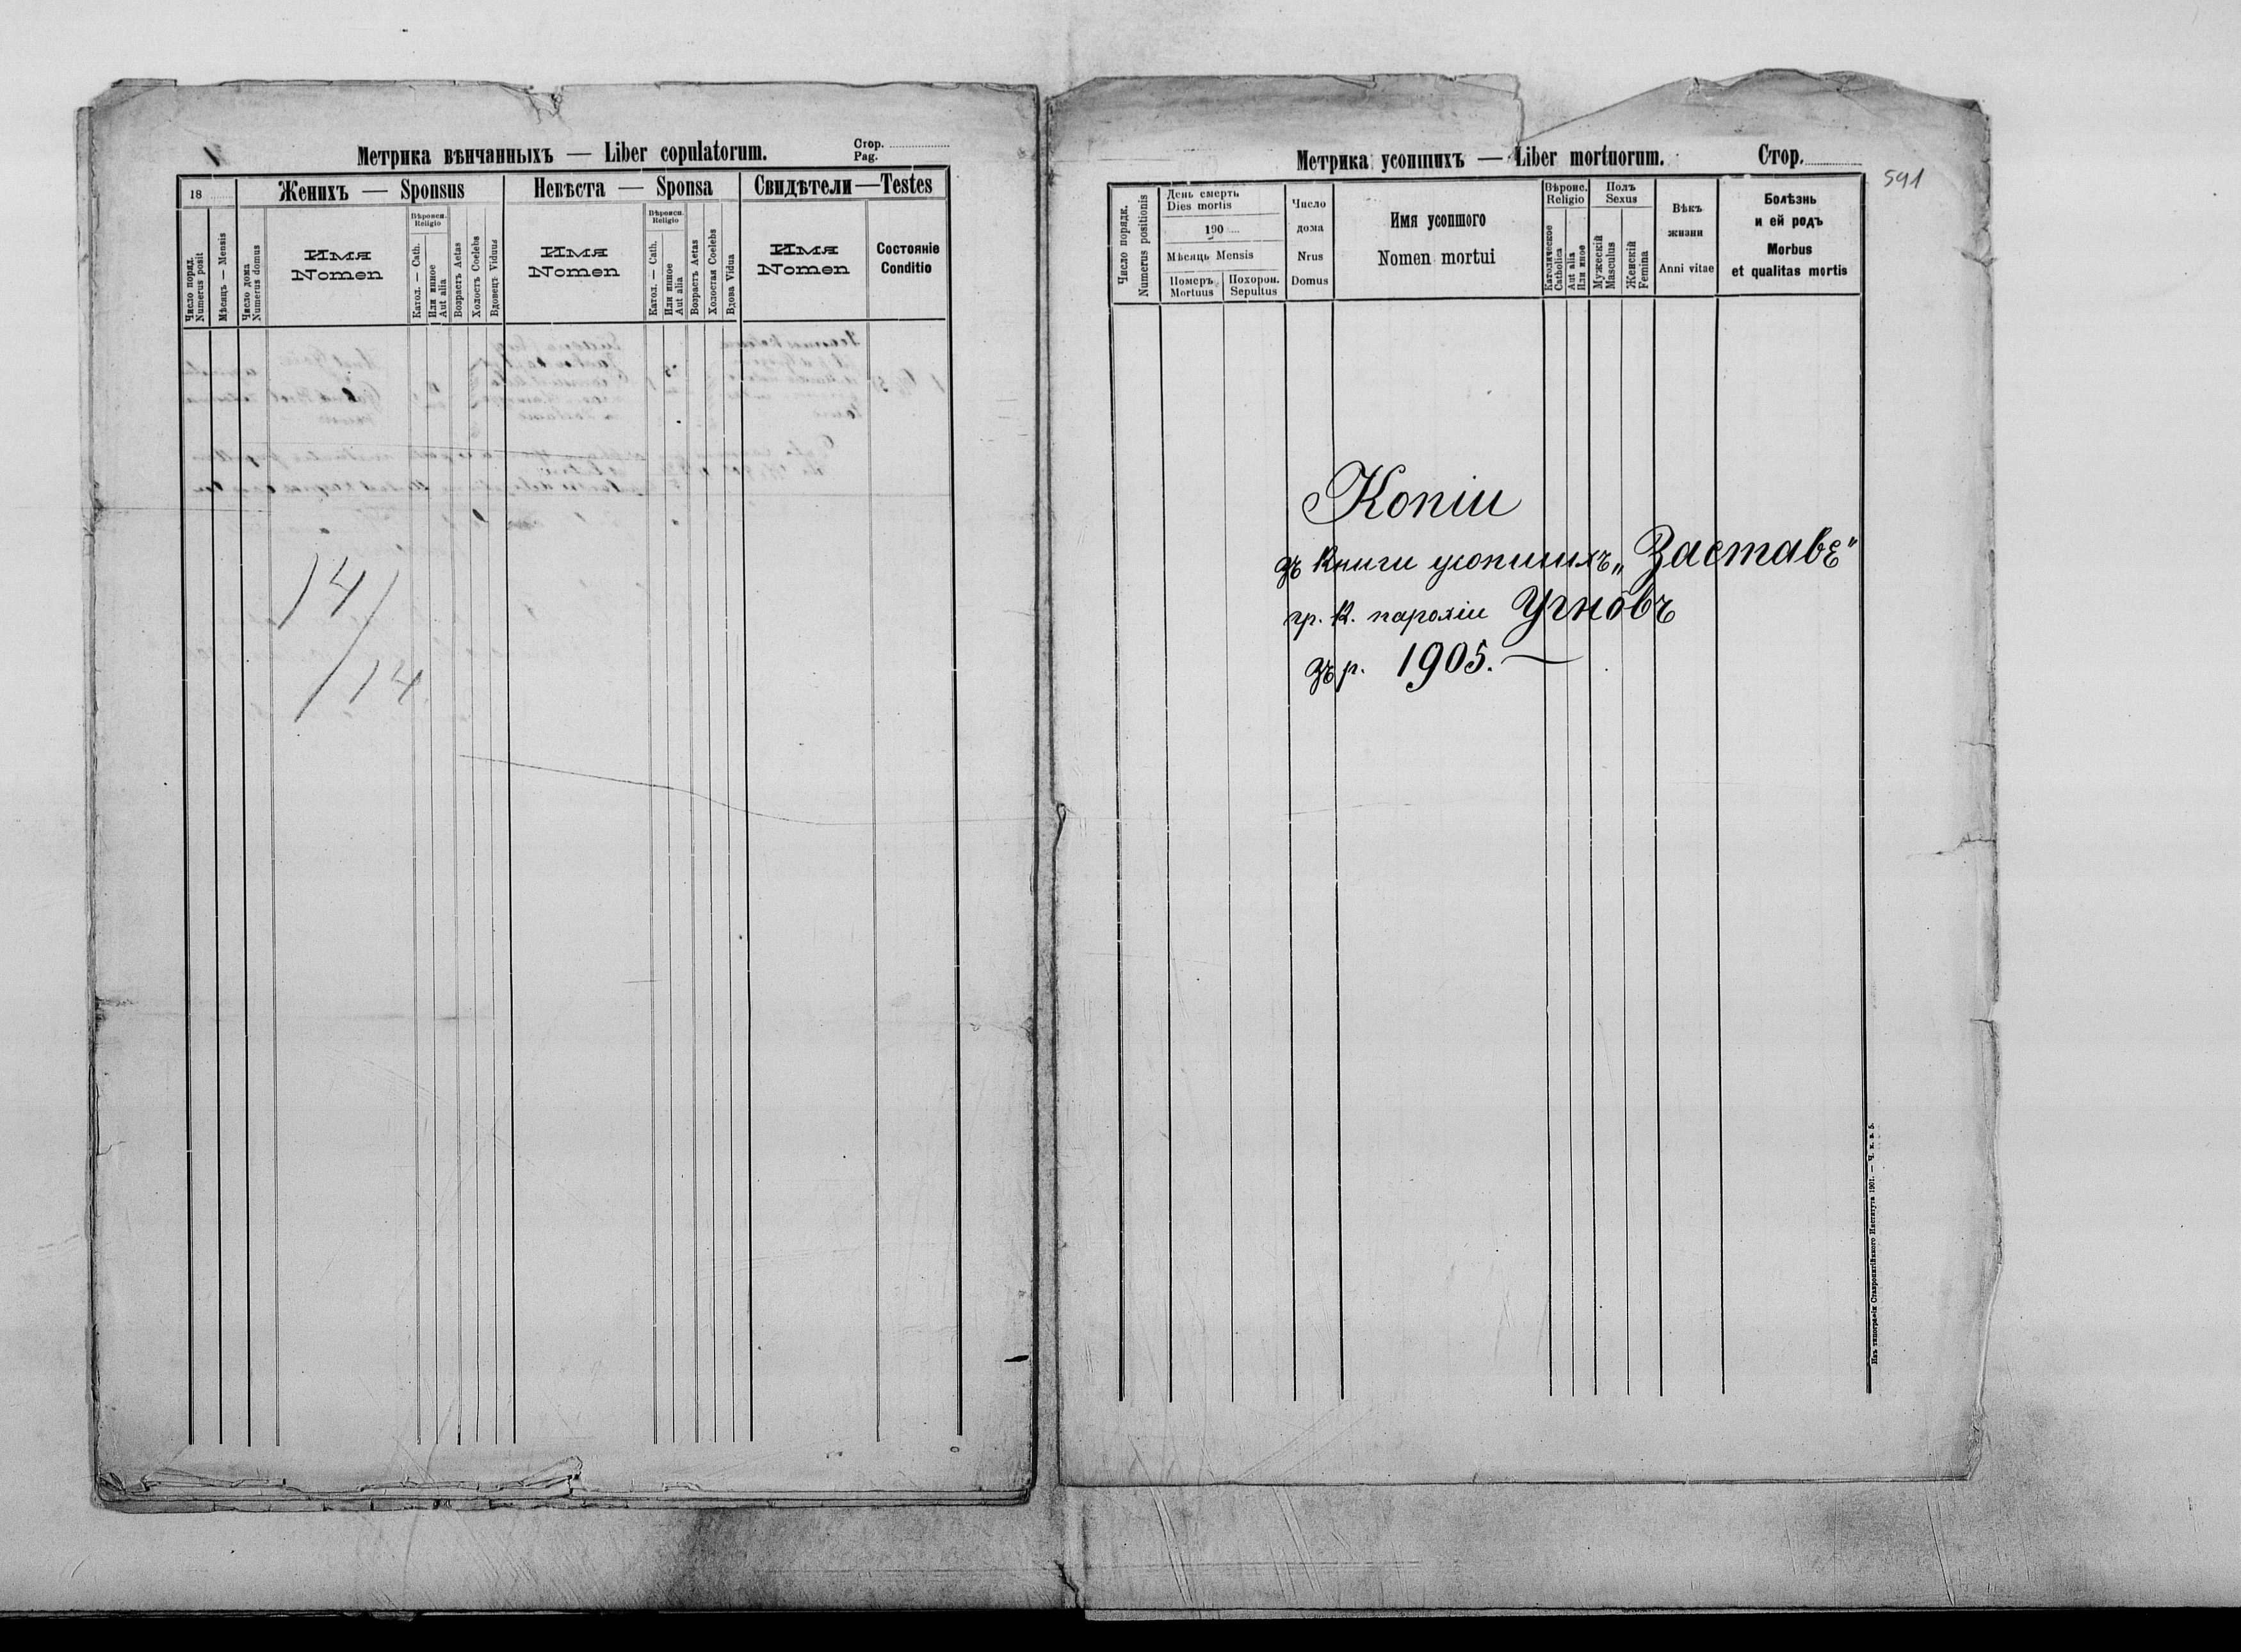 Метрика вѣнчанныхъ — Liber copulatorum.
Стор.
Pag.
18
Женихъ — Sponsus
Невѣста — Sponsa
Свидѣтели—Testes
Число поряд.
Numerus posit
Мѣсяцъ — Mensis
Число дома
Numerus domus
Имя
Nomen
Вѣроисп.
Religio
Катол. — Cath.
Или инное
Aut alia
Возрастъ Aetas
Холостъ Coelebs
Вдовецъ Viduus
Имя
Nomen
Вѣроисп.
Religio
Катол. — Cath.
Или инное
Aut alia
Возрастъ Aetas
Холостая Coelebs
Вдова Vidua
Имя
Nomen
Состояніе
Conditio
14
14
Метрика усопшихъ — Liber mortuorum.
Стор.
591
Число порядк.
Numerus positionis
День смерть
Dies mortis
190
Мѣсяць Mensis
Померъ
Mortuus
Похорон.
Sepultus
Число
дома
Nrus
Domus
Имя усопшого
Nomen mortui
Вѣроис.
Religio
Католическое
Catholica
Aut alia
Или иное
Полъ
Sexus
Мужескій
Masculus
Женскій
Femina
Вѣкъ
жизни
Anni vitae
Болѣзнь
и ей родъ
Morbus
et qualitas mortis
Копіи
зъ книги усопшихъ „Заставє"
гр. к. парохіи Угнôвъ
зъ р. 1905. —
Изъ типографіи Ставропигійского Института 1901. — Ч. к. в. 5.